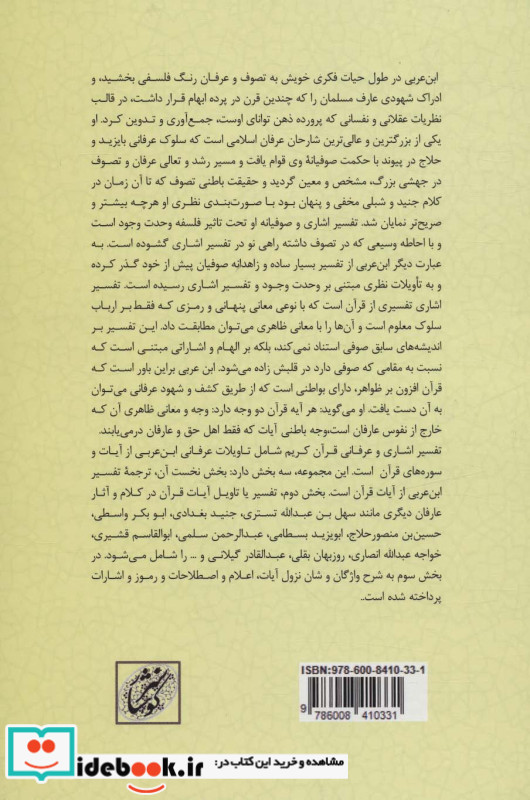 ابن‌عربی در طول حیات فکری خویش به تصوف و عرفان رنگ فلسفی بخشید، و
ادراک شهودی عارف مسلمان را که چندین قرن در پرده ابهام قرار داشت، در قالب
نظریات عقلانی و نفسانی که پرورده ذهن توانای اوست، جمع‌آوری و تدوین کرد. او
یکی از بزرگترین و عالی‌ترین شارحان عرفان اسلامی است که سلوک عرفانی بایزید و
حلاج در پیوند با حکمت صوفیانۀ وی قوام یافت و مسیر رشد و تعالی عرفان و تصوف
در جهشی بزرگ، مشخص و معین گردید و حقیقت باطنی تصوف که تا آن زمان در
کلام جنید و شبلی مخفی و پنهان بود با صورت‌بندی نظری او هرچه بیشتر و
صریح‌تر نمایان شد. تفسیر اشاری و صوفیانه او تحت تاثیر فلسفه وحدت وجود است
و با احاطه وسیعی که در تصوف داشته راهی نو در تفسیر اشاری گشوده است. به
عبارت دیگر ابن‌عربی از تفسیر بسیار ساده و زاهدانه صوفیان پیش از خود گذر کرده
و به تأویلات نظری مبتنی بر وحدت وجود و تفسیر اشاری رسیده است. تفسیر
اشاری تفسیری از قرآن است که با نوعی معانی پنهانی و رمزی که فقط بر ارباب
سلوک معلوم است و آن‌ها را با معانی ظاهری می‌توان مطابقت داد. این تفسیر بر
اندیشه‌های سابق صوفی استناد نمی‌کند، بلکه بر الهام و اشاراتی مبتنی است که
نسبت به مقامی که صوفی دارد در قلبش زاده می‌شود. ابن عربی براین باور است که
قرآن افزون بر ظواهر، دارای بواطنی است که از طریق کشف و شهود عرفانی می‌توان
به آن دست یافت. او می‌گوید: هر آیه قرآن دو وجه دارد: وجه و معانی ظاهری آن که
خارج از نفوس عارفان است،وجه باطنی آیات که فقط اهل حق و عارفان درمی‌یابند.
تفسیر اشاری و عرفانی قرآن کریم شامل تاویلات عرفانی ابن‌عربی از آیات و
سوره‌های قرآن است. این مجموعه، سه بخش دارد: بخش نخست آن، ترجمۀ تفسیر
ابن‌عربی از آیات قرآن است. بخش دوم، تفسیر یا تاویل آیات قرآن در کلام و آثار
عارفان دیگری مانند سهل بن عبدالله تستری، جنید بغدادی، ابو بکر واسطی،
حسین‌بن منصورحلاج، ابویزید بسطامی، عبدالرحمن سلمی، ابوالقاسم قشیری،
خواجه عبدالله انصاری، روزبهان بقلی، عبدالقادر گیلانی و ... را شامل می‌شود. در
بخش سوم به شرح واژگان و شان نزول آیات، اعلام و اصطلاحات و رموز و اشارات
پرداخته شده است..
ISBN: 978-600-8410-33-1
9 786008 410331
مشاهده و خرید این کتاب در:
idebook.ir